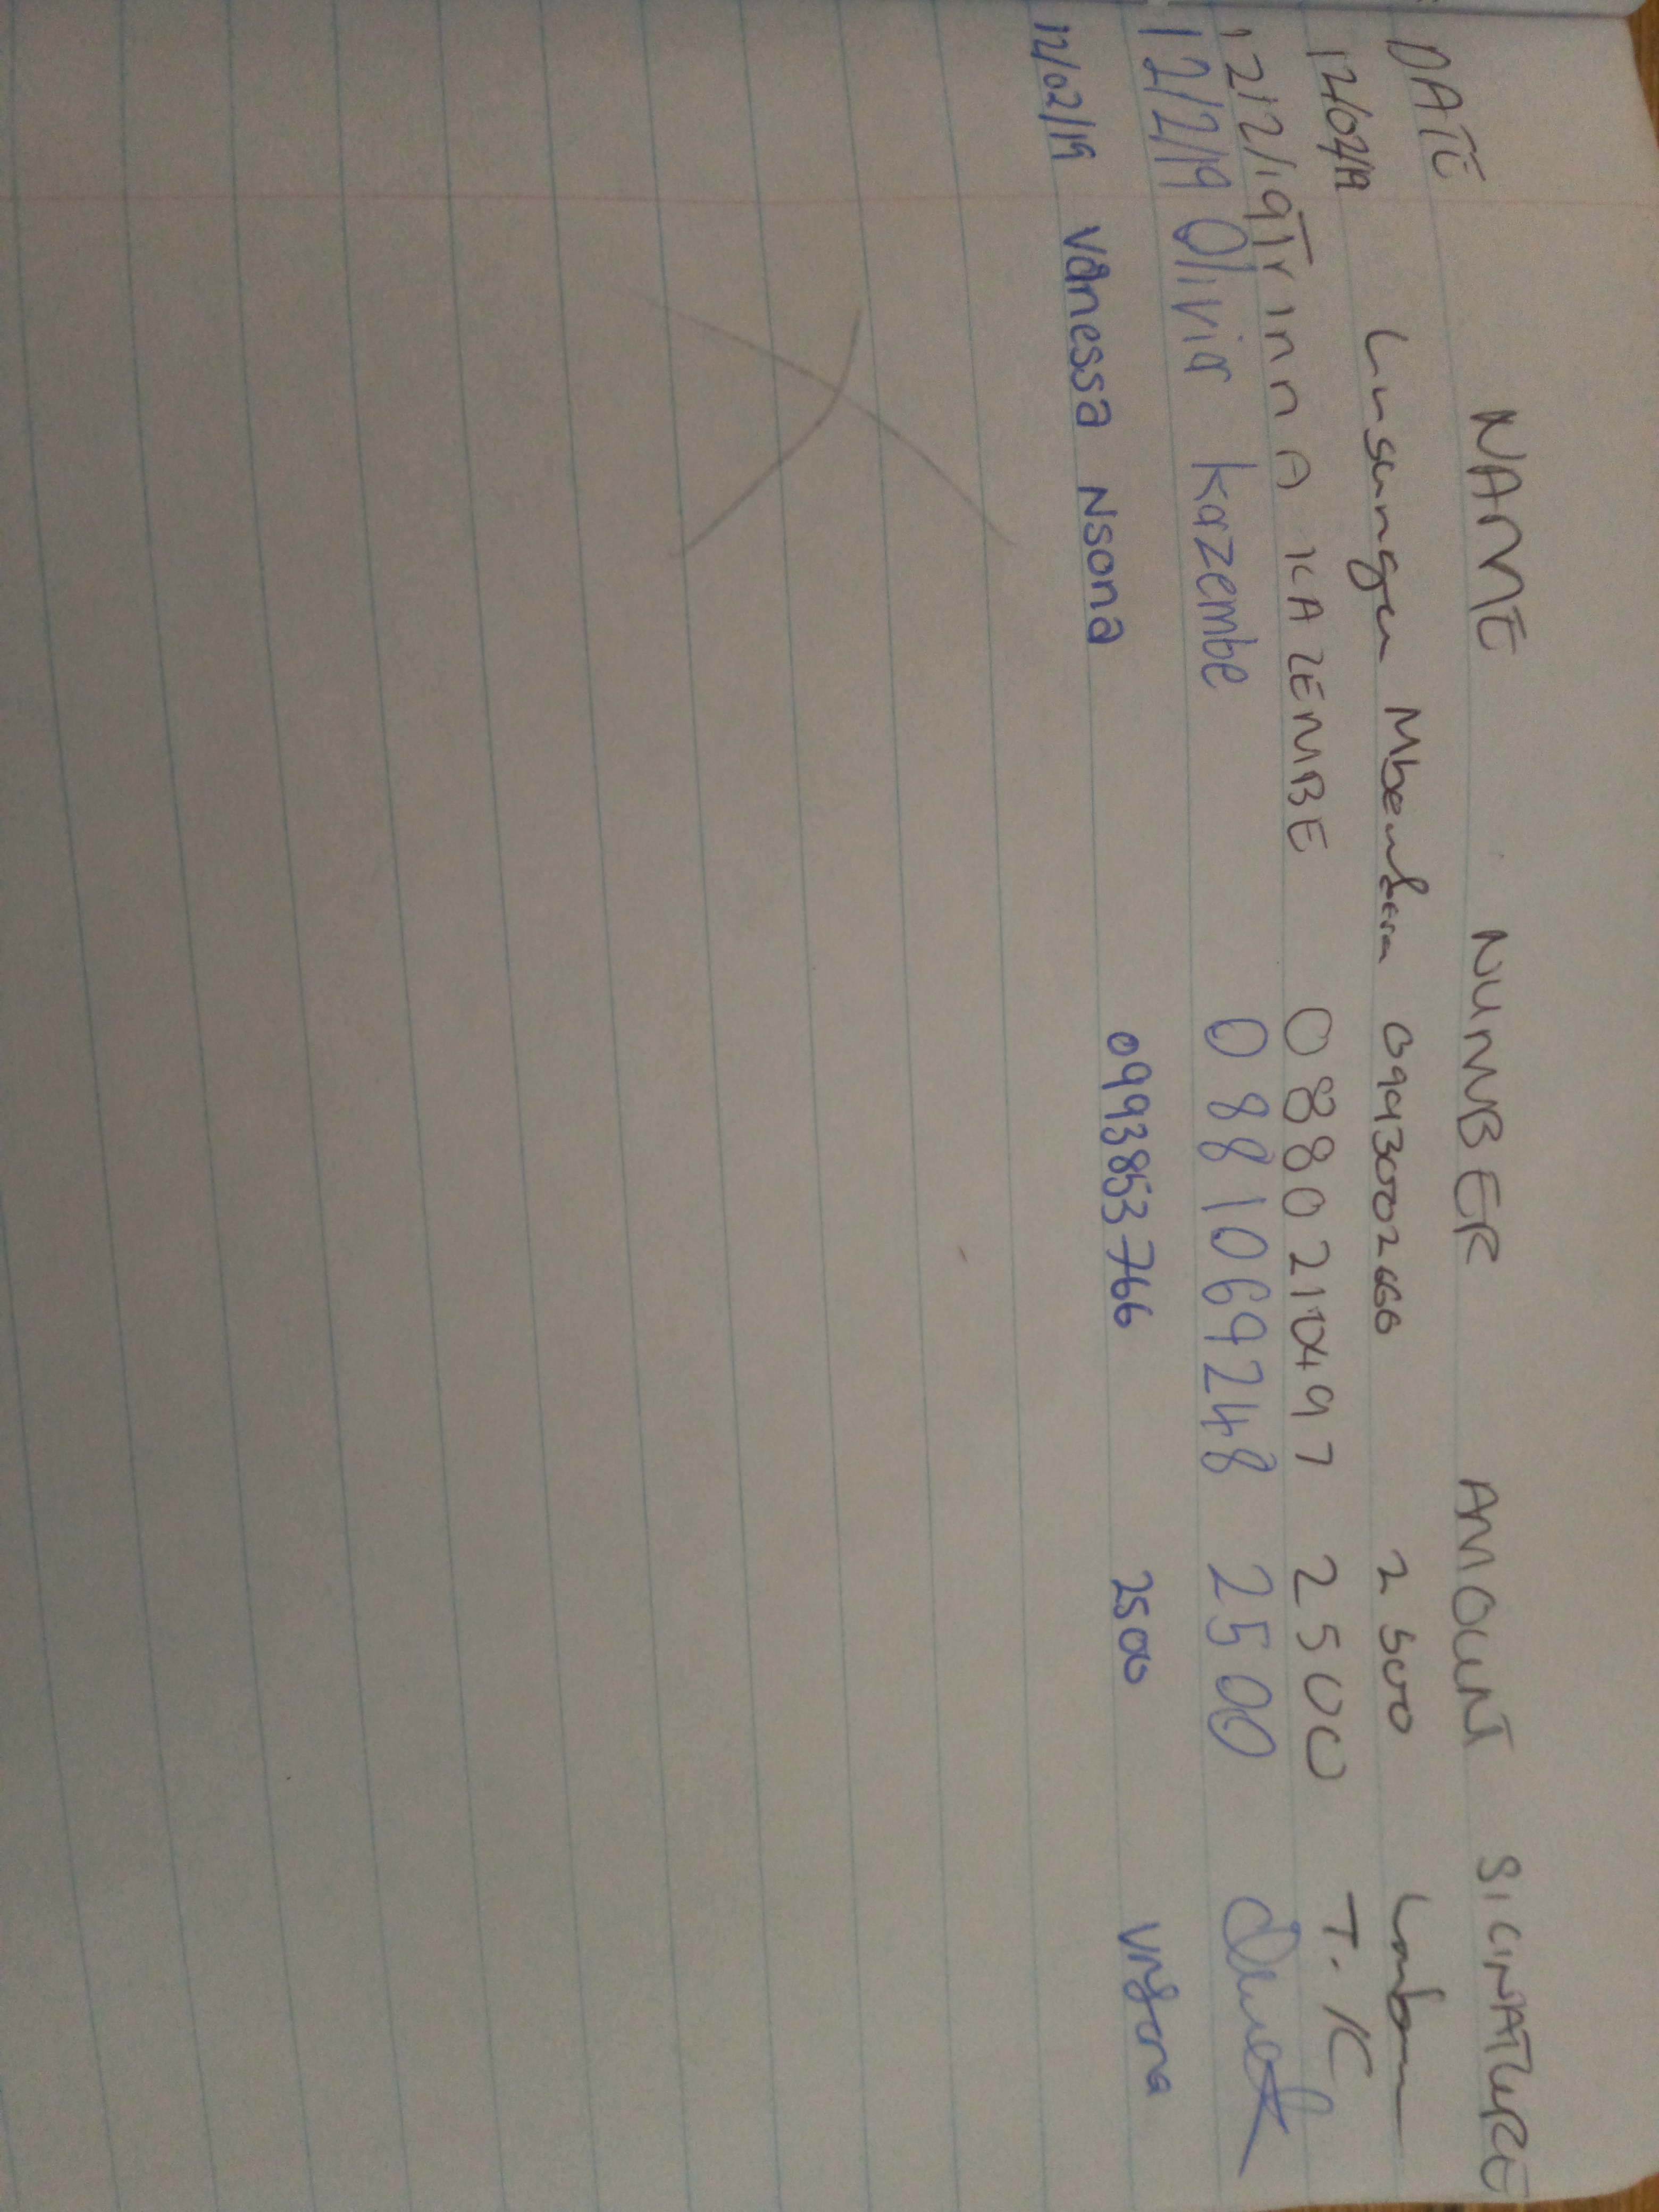 DATE NAME NUMBER AMOUNT SIGNATURE
12/02/19 Lusungu Mbembera 0993002666 2500
12/2/19 Trinna KAZEMBE 0880210497 2500 T.K
12/2/19 Olivia Kazembe 0881069248 2500
12/02/19 Vanessa Nsona 0993853766 2500 VNsona